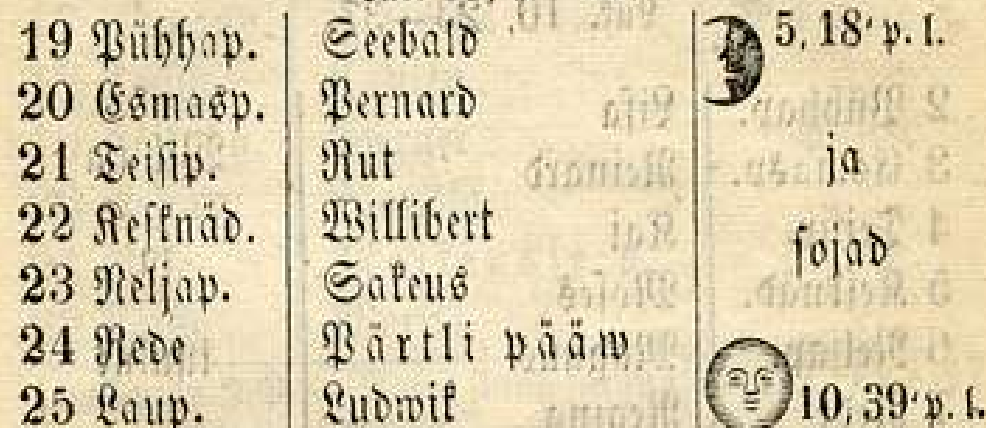 19 Pühhap. Seebald 5, 18' p. l.
20 Esmasp. Pernard
21 Teisip. Rut ja
22 Kesknäd. Willibert sojad
23 Neljap. Sakeus
24 Rede Pärtli pääw
25 Laup. Ludwik 10, 39' p. l.